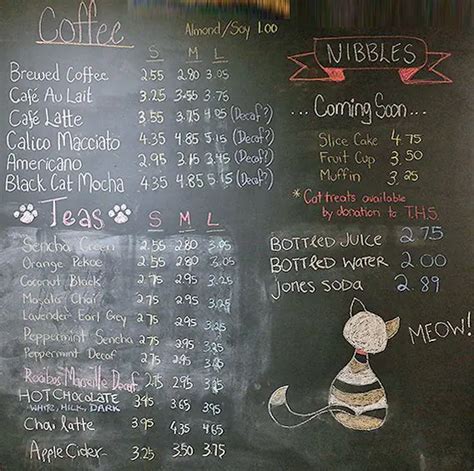 Coffee
Almond/Soy 1.00
S M L
Brewed Coffee 2.55 2.80 3.05
Café Au Lait 3.25 3.55 3.75
Café Latte 3.55 3.75 4.95 (Decaf?)
Calico Macciato 4.35 4.85 5.15 (Decaf?)
Americano 2.95 3.15 3.45 (Decaf?)
Black Cat Mocha 4.35 4.85 5.15 (Decaf?)
Teas S M L
Sencha Green 2.55 2.80 3.05
Orange Pekoe 2.25 2.50
Coconut Black 2.75
Masala Chai 2.75
Lavender Earl Grey 2.75
Peppermint Sencha 2.75
Peppermint Decaf 2.75
Rooibos Marseille Decaf
HOT CHOCOLATE 3.45 3.65 3.95
WHITE, MILK, DARK
Chai latte 3.95 4.35 4.65
Apple Cider 3.25 3.50 3.75
NIBBLES
... Coming Soon...
Slice Cake 4.75
Fruit Cup 3.50
Muffin 3.25
* Cat treats available
by donation to T.H.S.
BOTTLED JUICE 2.75
BOTTLED WATER 2.00
JONES SODA 2.89
MEOW!